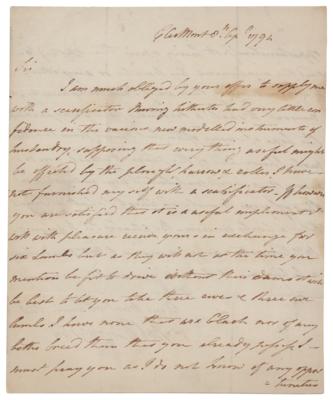 ClerMont 8th Apl 1794
Sir
I am much obliged by your offer to supply me
with a scarificator Having hitherto had very little con
fidence in the various new modelled instruments of
husbandry, supposing that every thing useful might
be effected by the plough harrow & roller I have
not furnished my self with a scarificator. If however
you are satisfied that it is a useful implement I
will with pleasure receive yours in exchange for
six Lambs but as they will not at the time you
mention be fit to drive without their dams it will
be best to let you take three ewes & three ewe
lambs I have none that are black nor of any
better breed than those you already possess I
must pray you as I do not know of any oppor
=tunities